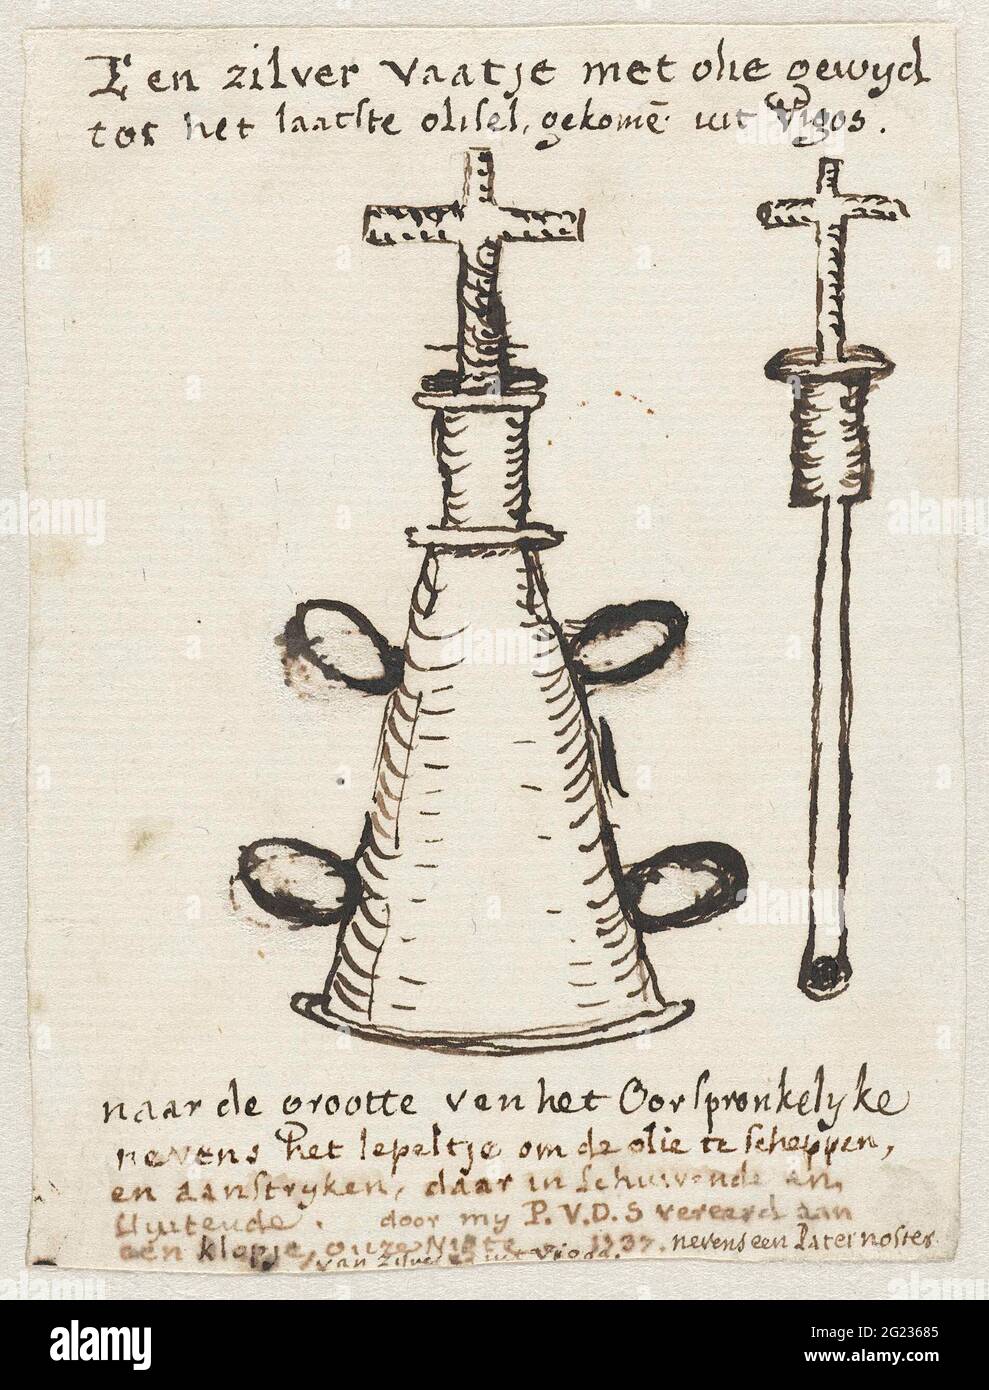 Een zilver vaatje met olie gewyd
tot het laatste olisel, gekomē uit Vigos.
naar de grootte van het Oorspronkelyke
nevens het lepeltje om de olie te scheppen,
en aanstryken, daar in schuivende en
Uyutende. door my P.V.D.S vereerd aan
een klopje, onze Nigte 1737. nevens een Paternoster
van zilver uit Vigos.
alamy
Image ID: 2G23685
www.alamy.com